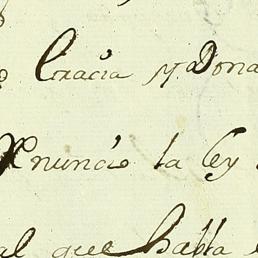 Gracia y Dona
Renuncio la ley
al que habla